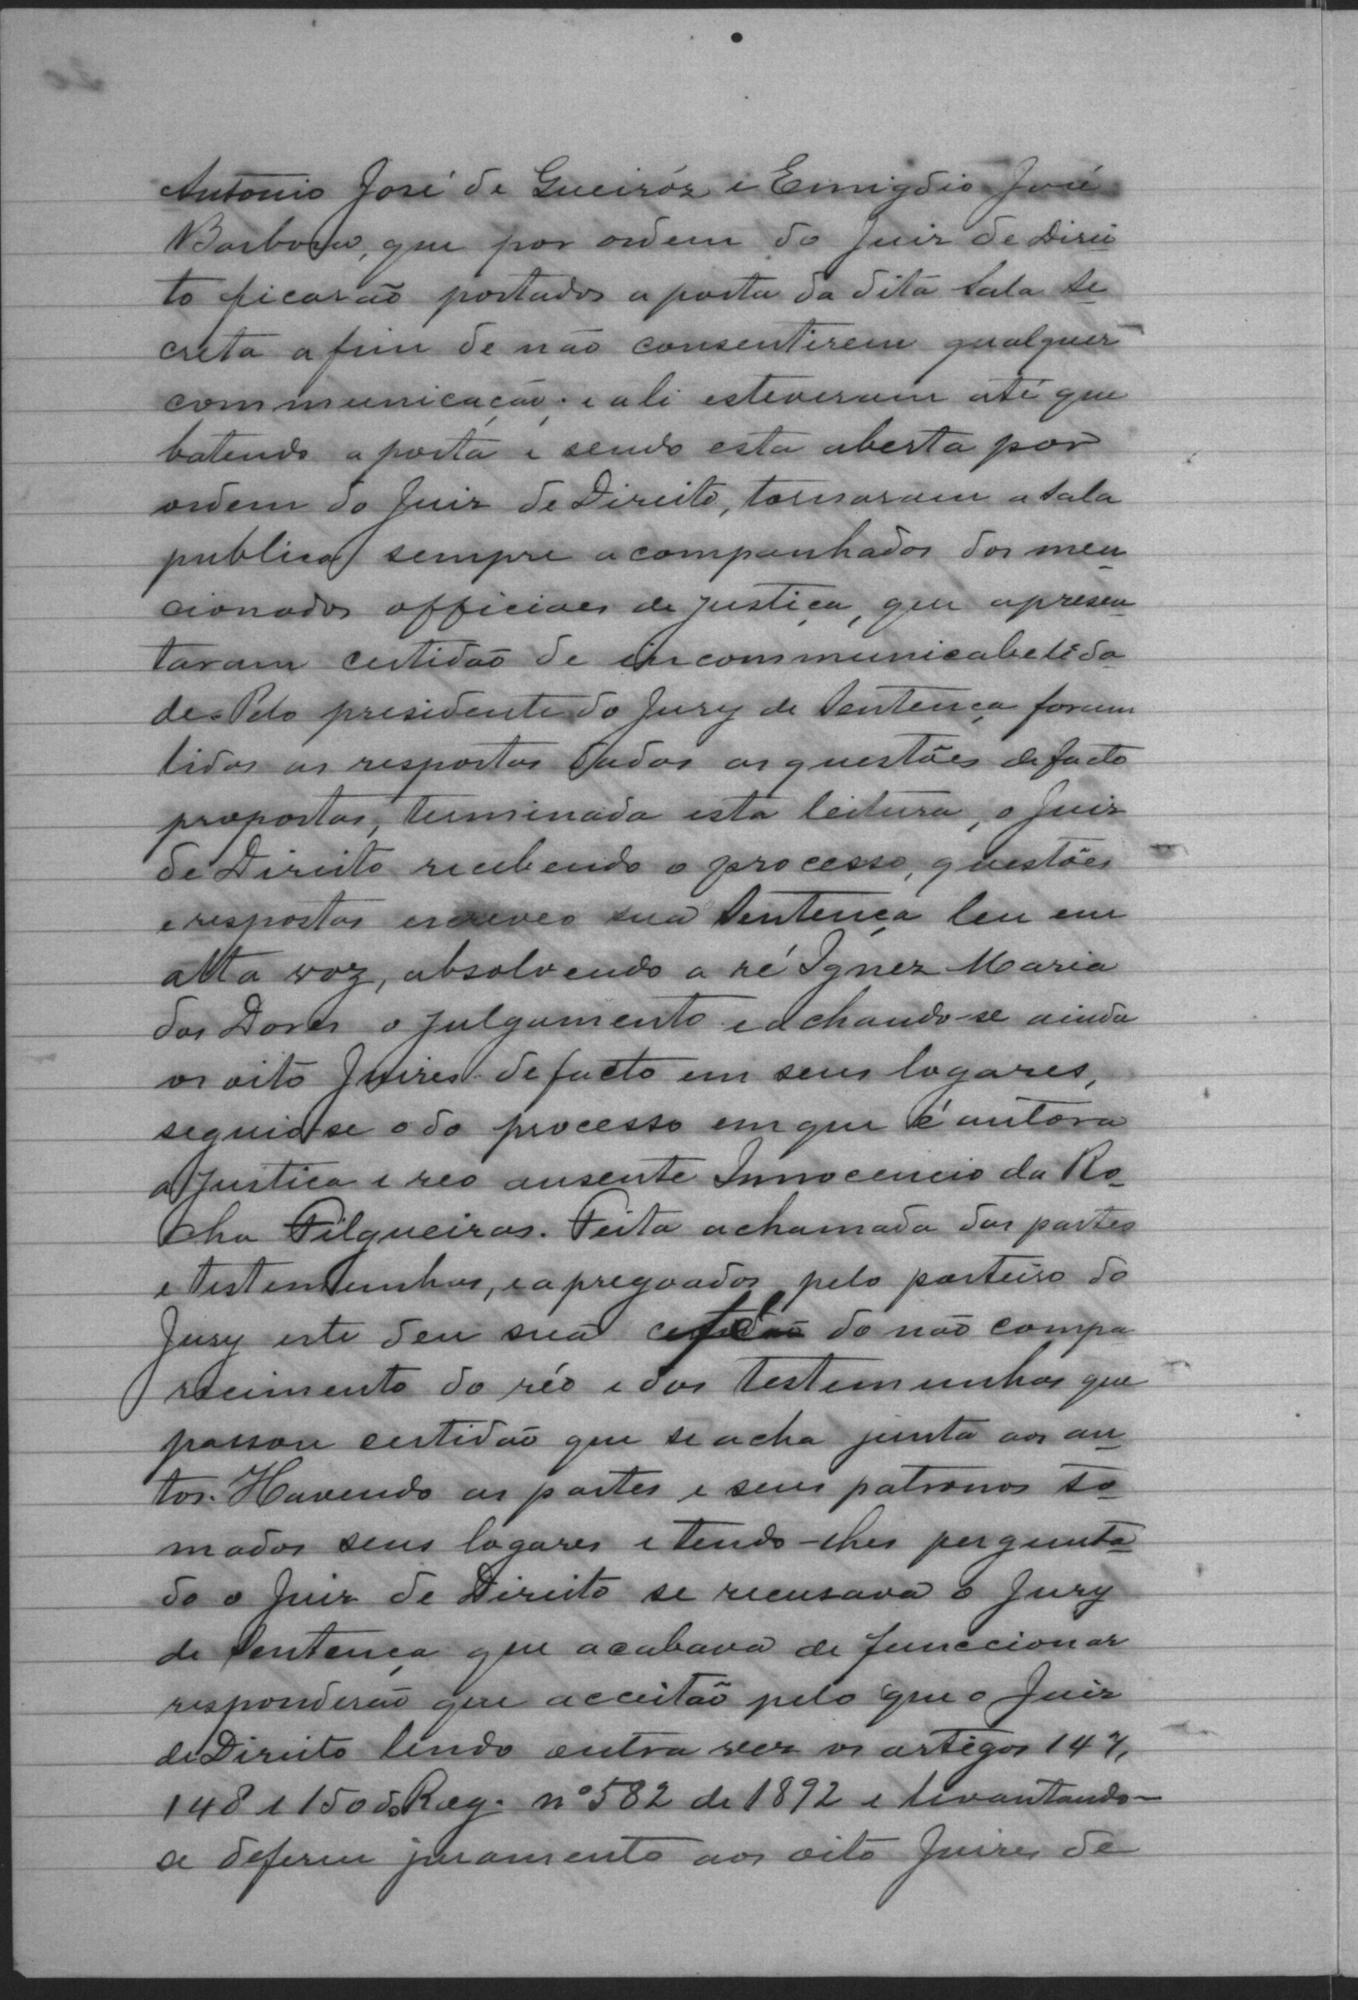 Antonio José de Gueiróz e Emigdio José
Barbosa, que por ordem do Juiz de Direi
to ficarão postados a porta da dita sala se
creta a fim de não consentirem qualquer
communicação; e ali esteveram até que
batendo a porta e sendo esta aberta por
ordem do Juiz de Direito, tornaram a sala
publica sempre acompanhados dos men
cionados officiaes de justiça, que apresen
taram certidão de incommunicabelida
de. Pelo presidente do Jury de Sentença foram
lidas as respostas dadas as questões de facto
propostas, terminada esta leitura, o Juiz
de Direito recebendo o processo, questões
e respostas escreveo sua Sentença leu em
alta voz, absolvendo a ré Ignez Maria
das Dores o julgamento e achando-se ainda
os oito Juizes de facto em seus logares,
seguio-se o do processo em que é autora
a Justica e reo ausente Innocencio da Ro
cha Filgueiras. Feita a chamada das partes
e testemunhas, e apregoados pelo porteiro do
Jury este deu sua do não compa
recimento do réo e das testemunhas que
passou certidão que se acha junta aos au
tos. Havendo as partes e seus patronos to
mados seus logares e tendo-lhes pergunta
do o Juiz de Direito se recusava o Jury
de Sentença que acabava de funccionar
responderão que acceitão pelo que o Juiz
de Direito lendo outra vez os artigos 147,
148 e 150 do Reg. nº 582 de 1892 e levantando-
se deferiu juramento aos oito Juizes de